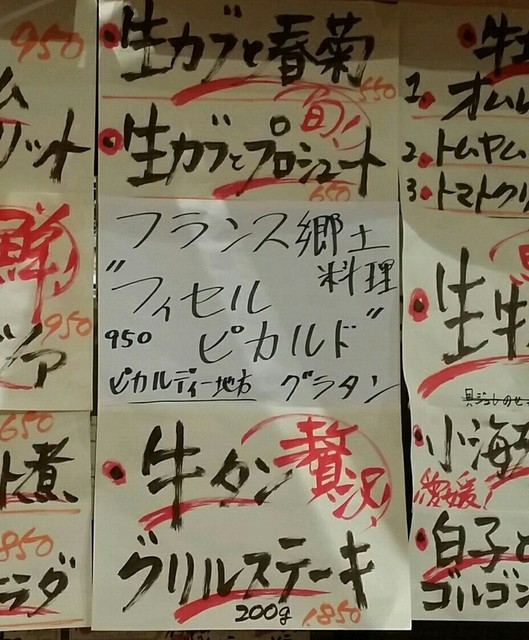 950
ム
リット
鮮
950
650
煮
850
ラダ
生カブと春菊
550
旬!
生カブとプロシュート
650
フランス郷土
料理
"フィセル
950 ピカルド"
ピカルディー地方 グラタン
牛タン 贅沢!
グリルステーキ
200g 1850
1. オムレ
2. トムヤム
3. トマトクリ
生牡
小海
愛媛!
白子と
ゴルゴン